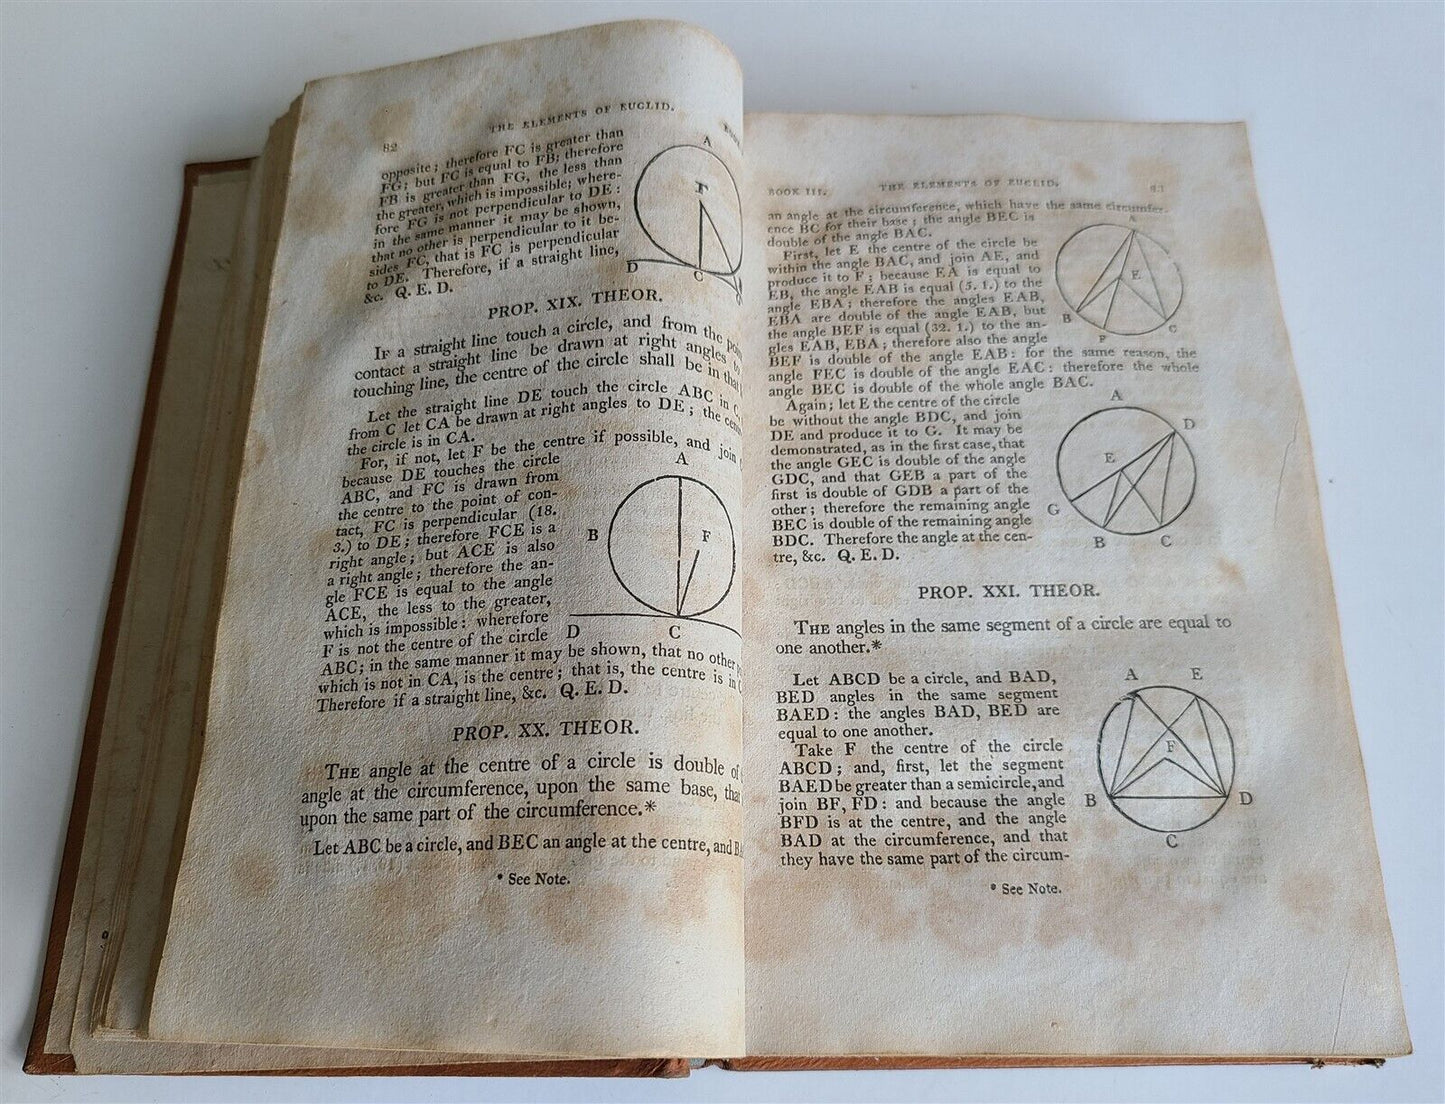 82
THE ELEMENTS OF EUCLID.
opposite; therefore FC is greater than
FG; but FC is equal to FB; therefore
FB is greater than FG, the less than
the greater, which is impossible; where-
fore FG is not perpendicular to DE:
in the same manner it may be shown,
that no other is perpendicular to it be-
sides FC, that is FC is perpendicular
to DE. Therefore, if a straight line,
&c. Q. E. D.
A
F
D
C
PROP. XIX. THEOR.
IF a straight line touch a circle, and from the
contact a straight line be drawn at right angles
touching line, the centre of the circle shall be in that
Let the straight line DE touch the circle ABC in C,
from C let CA be drawn at right angles to DE; the
the circle is in CA.
For, if not, let F be the centre if possible, and join
because DE touches the circle
ABC, and FC is drawn from
the centre to the point of con-
tact, FC is perpendicular (18.
3.) to DE; therefore FCE is a
right angle; but ACE is also
a right angle; therefore the an-
gle FCE is equal to the angle
ACE, the less to the greater,
which is impossible: wherefore
F is not the centre of the circle
ABC; in the same manner it may be shown, that no other
which is not in CA, is the centre; that is, the centre is in
Therefore if a straight line, &c. Q. E. D.
A
B
F
D
C
PROP. XX. THEOR.
THE angle at the centre of a circle is double of
angle at the circumference, upon the same base, that
upon the same part of the circumference.*
Let ABC be a circle, and BEC an angle at the centre, and
* See Note.
BOOK III.
THE ELEMENTS OF EUCLID.
83
an angle at the circumference, which have the same circumfer-
ence BC for their base; the angle BEC is
double of the angle BAC.
First, let E the centre of the circle be
within the angle BAC, and join AE, and
produce it to F; because EA is equal to
EB, the angle EAB is equal (5. 1.) to the
angle EBA; therefore the angles EAB,
EBA are double of the angle EAB, but
the angle BEF is equal (32. 1.) to the an-
gles EAB, EBA; therefore also the angle
BEF is double of the angle EAB: for the same reason, the
angle FEC is double of the angle EAC: therefore the whole
angle BEC is double of the whole angle BAC.
A
E
B
F
C
Again; let E the centre of the circle
be without the angle BDC, and join
DE and produce it to G. It may be
demonstrated, as in the first case, that
the angle GEC is double of the angle
GDC, and that GEB a part of the
first is double of GDB a part of the
other; therefore the remaining angle
BEC is double of the remaining angle
BDC. Therefore the angle at the cen-
tre, &c. Q. E. D.
A
D
E
G
B
C
PROP. XXI. THEOR.
THE angles in the same segment of a circle are equal to
one another.*
Let ABCD be a circle, and BAD,
BED angles in the same segment
BAED: the angles BAD, BED are
equal to one another.
Take F the centre of the circle
ABCD; and, first, let the segment
BAED be greater than a semicircle, and
join BF, FD: and because the angle
BFD is at the centre, and the angle
BAD at the circumference, and that
they have the same part of the circum-
A
E
F
B
D
C
* See Note.